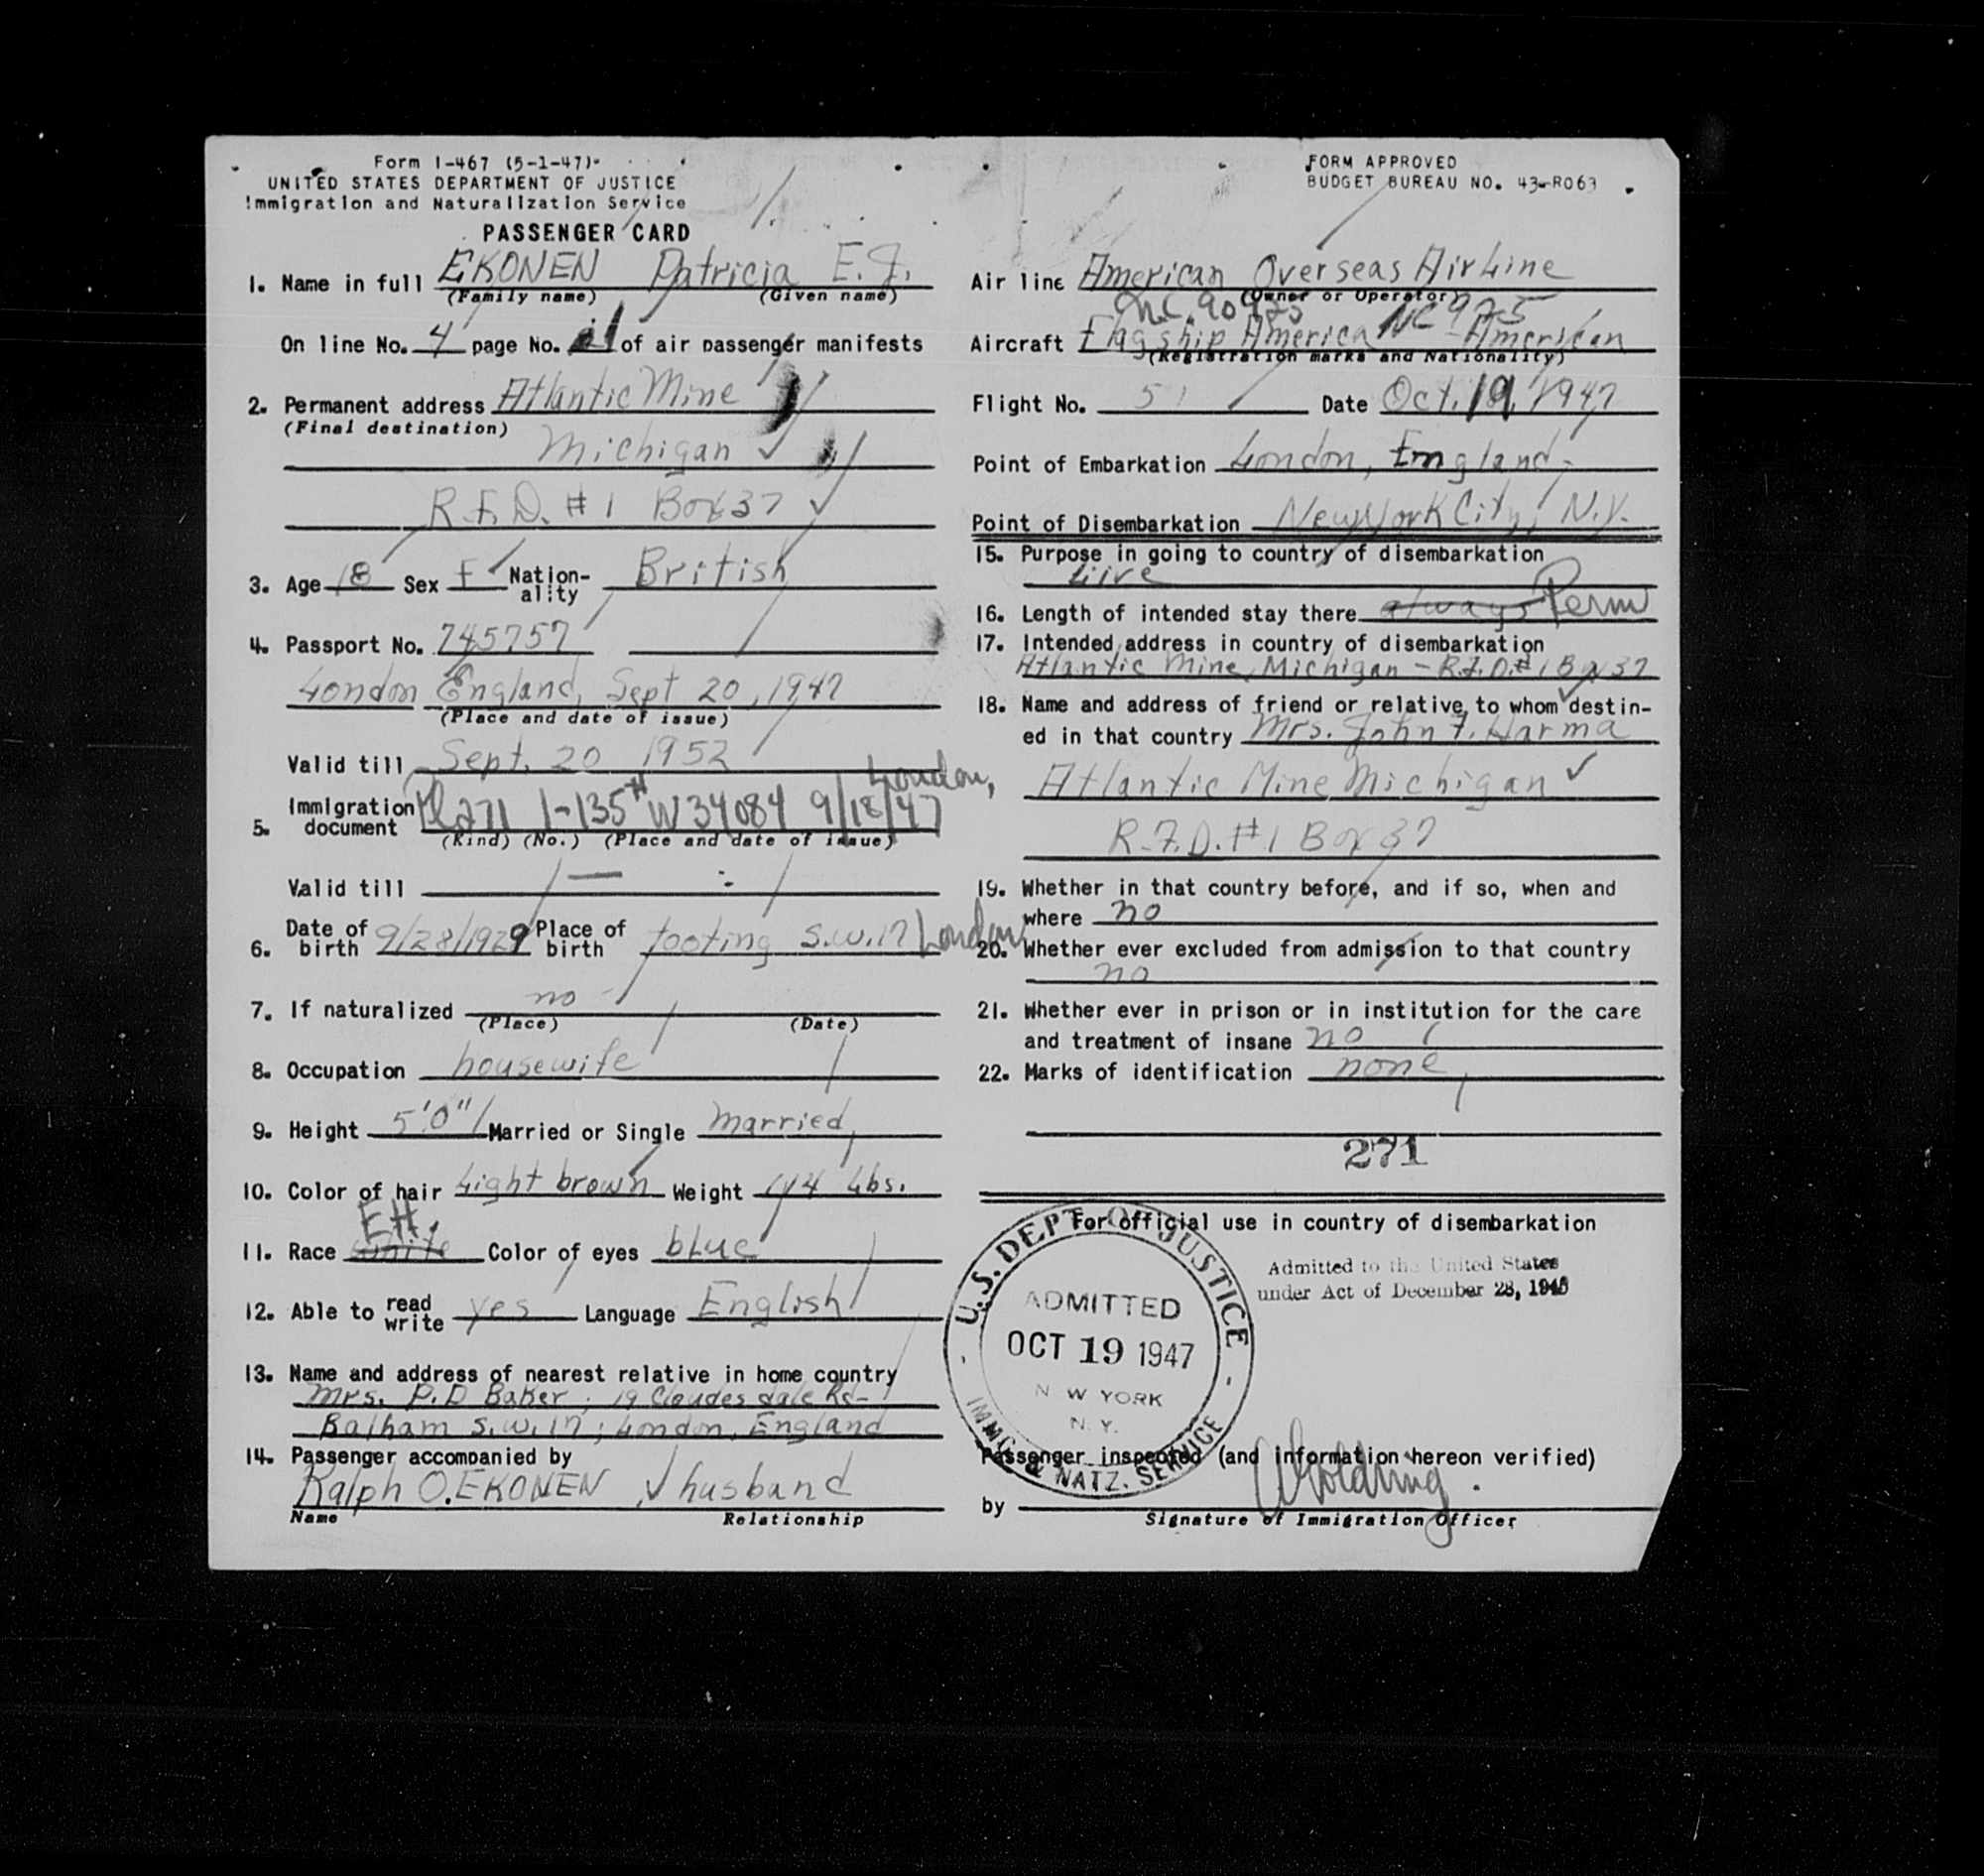 Form I-467 (5-1-47)
UNITED STATES DEPARTMENT OF JUSTICE
Immigration and Naturalization Service
PASSENGER CARD
1. Name in full EKONEN Patricia E. J.
(Family name) (Given name)
On line No. 4 page No. of air passenger manifests
2. Permanent address Atlantic Mine
(Final destination)
Michigan
R.F.D. #1 Box 37
3. Age 18 Sex F Nation-ality British
4. Passport No. 745757
London England, Sept 20, 1947
(Place and date of issue)
Valid till Sept. 20 1952
London,
5. Immigration document 271 I-135 W34084 9/18/47
(Kind) (No.) (Place and date of issue)
Valid till —
6. Date of birth 9/28/1929 Place of birth Tooting S.W.17 London
7. If naturalized no
(Place) (Date)
8. Occupation housewife
9. Height 5'0" Married or Single Married
10. Color of hair Light brown Weight 114 Lbs.
EH.
11. Race white Color of eyes blue
12. Able to read write yes Language English
13. Name and address of nearest relative in home country
Mrs. P.D Baker; 19 Cloudesdale Rd-
Balham S.W.17; London, England
14. Passenger accompanied by
Ralph O. EKONEN husband
Name Relationship
FORM APPROVED
BUDGET BUREAU NO. 43-R063
Air line American Overseas AirLine
(Owner or Operator)
N.C. 90925 NC 925
Aircraft Flagship America - American
(Registration marks and Nationality)
Flight No. 51 Date Oct. 19, 1947
Point of Embarkation London, England
Point of Disembarkation New York City, N.Y.
15. Purpose in going to country of disembarkation
Live
16. Length of intended stay there always Perm
17. Intended address in country of disembarkation
Atlantic Mine Michigan - R.F.D.#1 Box 37
18. Name and address of friend or relative to whom destin-
ed in that country Mrs. John F. Harma
Atlantic Mine Michigan
R.F.D. #1 Box 37
19. Whether in that country before, and if so, when and
where no
20. Whether ever excluded from admission to that country
no
21. Whether ever in prison or in institution for the care
and treatment of insane no
22. Marks of identification none
271
For official use in country of disembarkation
Admitted to the United States
under Act of December 28, 1945
U.S. DEPT. OF JUSTICE
ADMITTED
OCT 19 1947
NEW YORK
N.Y.
IMMG. & NATZ. SERVICE
Passenger inspected (and information hereon verified)
by
Signature of Immigration Officer